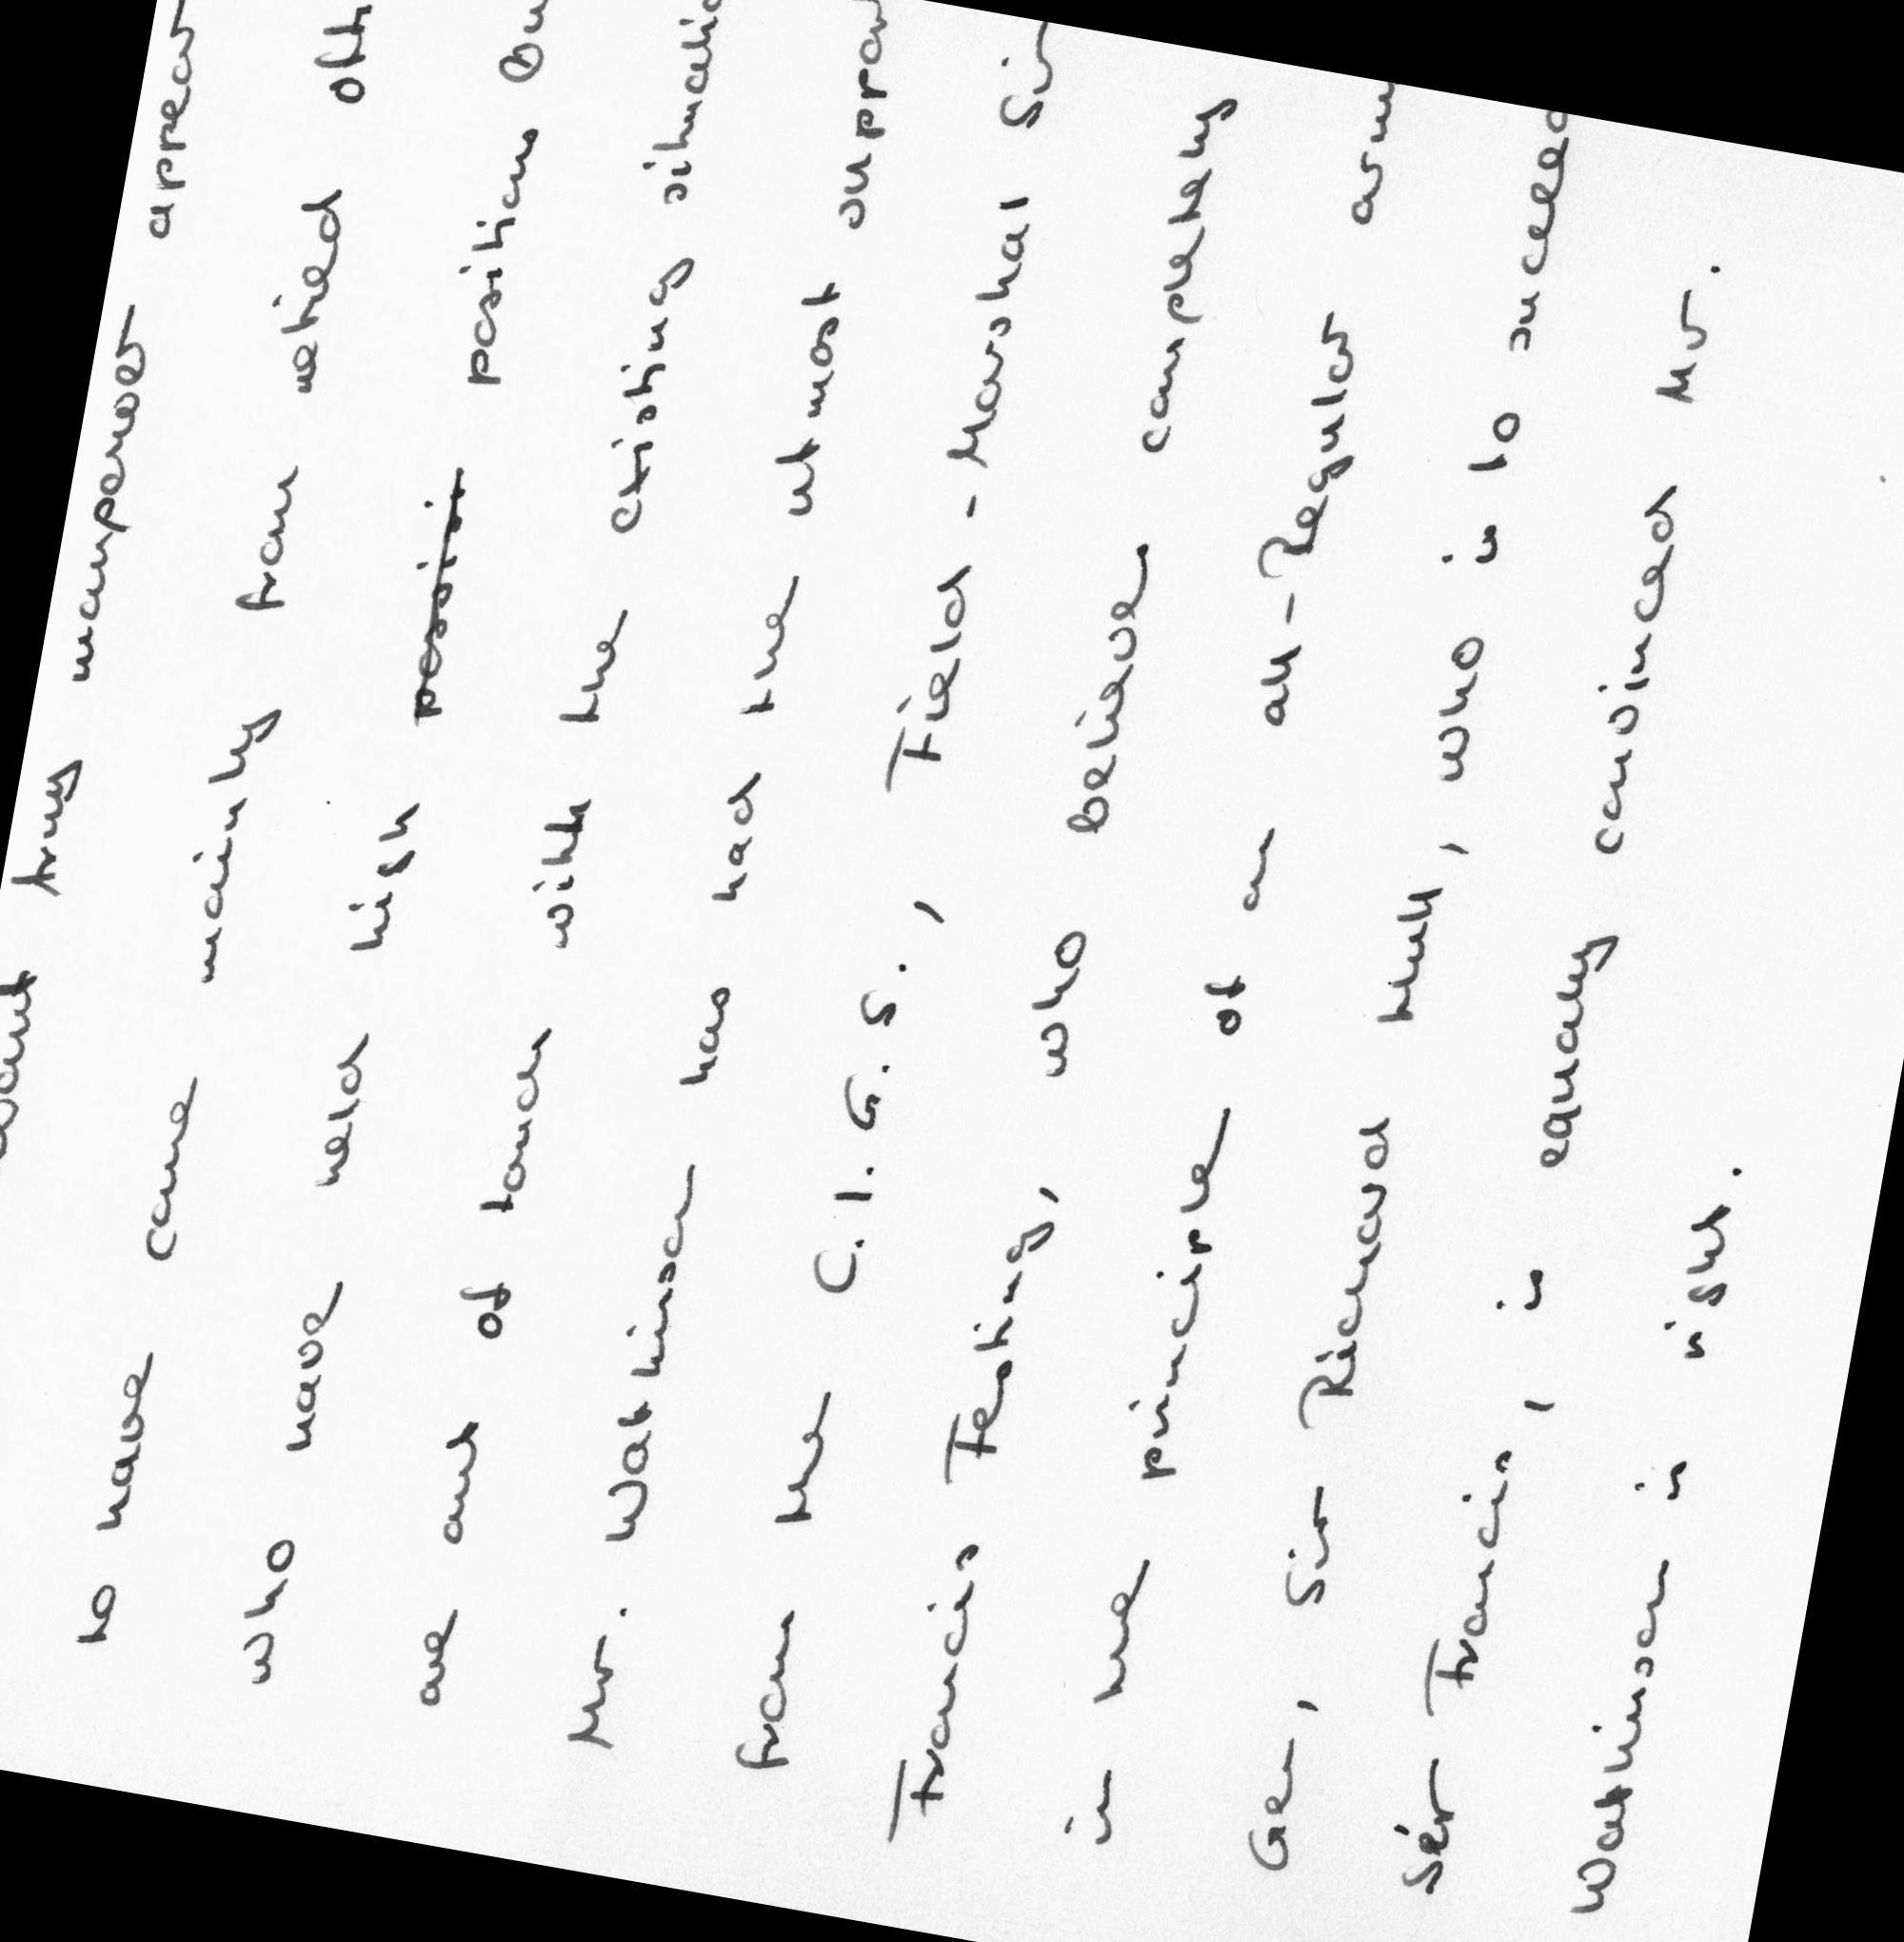 Army manpower appear
to have come mainly from retired
who have held high positions
are out of touch with the existing
Mr. Watkinson has had the utmost
from the C.I.G.S., Field-Marshal Sir
Francis Festing, who believe completely
in the principle of an all-Regular
Gen, Sir Richard Hull, who is to succeed
Sir Francis, is equally convinced Mr.
Watkinson is right.